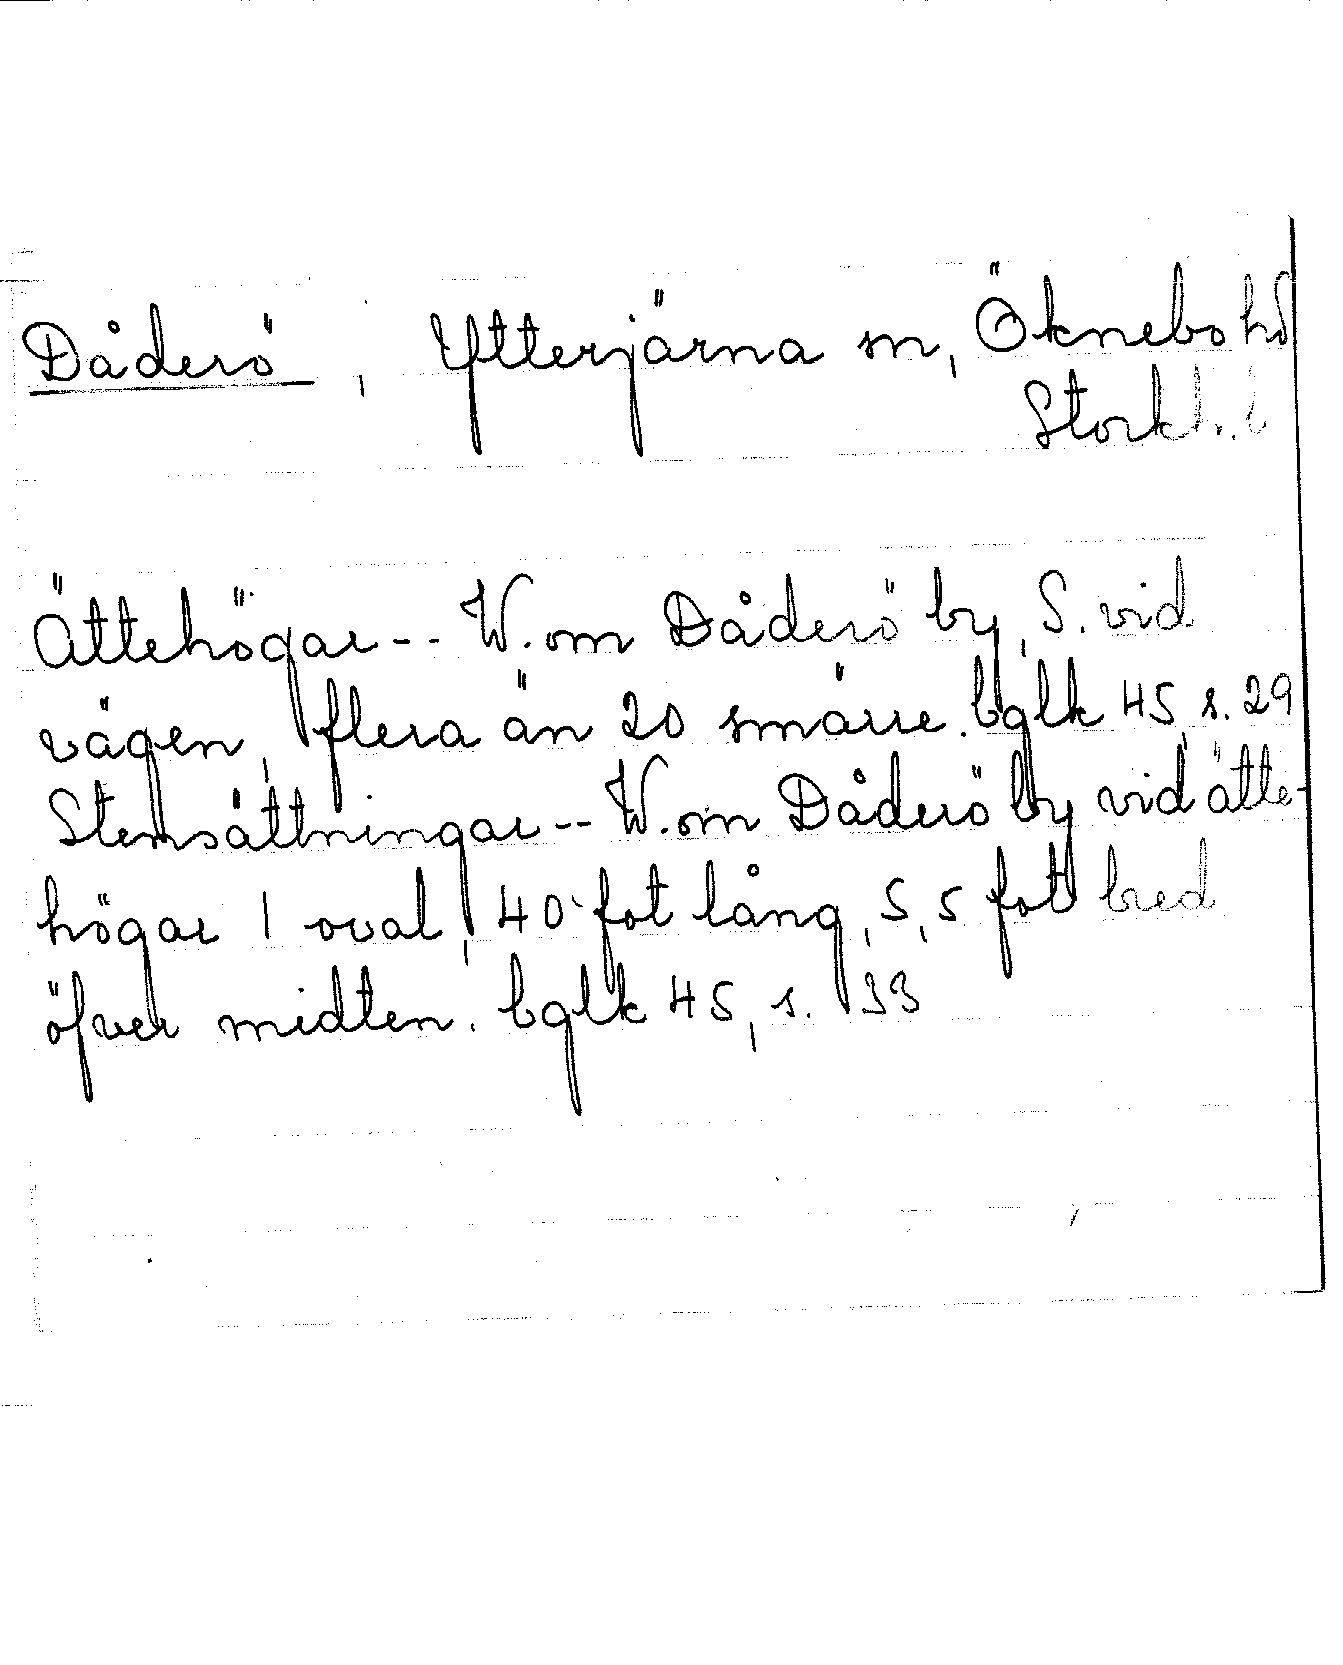 Dåderö, Ytterjärna sn, Öknebo hd
Stockh. l
Ättehögar -- W. om Dåderö by, S. vid
vägen, flera än 20 smärre. bglk 45, s. 29
Stensättningar -- W. om Dåderö by vid ätte-
högar 1 oval, 40 fot lång, 5,5 fot bred
öfver midten. bglk 45, s. 33